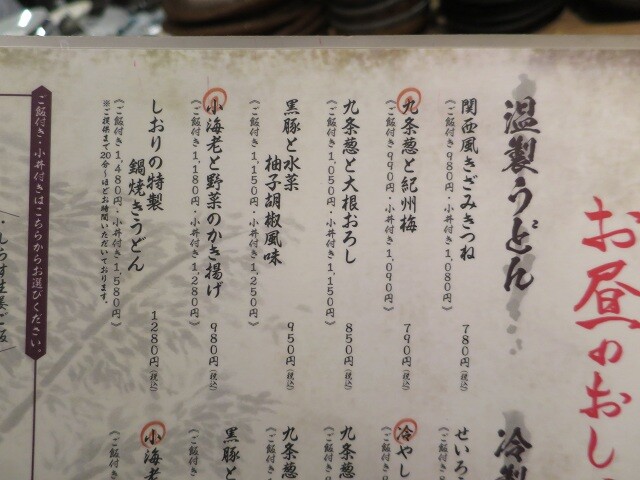 お昼のおし
温製うどん
関西風きざみきつね 780円(税込)
《ご飯付き980円・小丼付き1,080円》
九条葱と紀州梅 790円(税込)
《ご飯付き990円・小丼付き1,090円》
九条葱と大根おろし 850円(税込)
《ご飯付き1,050円・小丼付き1,150円》
黒豚と水菜
柚子胡椒風味 950円(税込)
《ご飯付き1,150円・小丼付き1,250円》
小海老と野菜のかき揚げ 980円(税込)
《ご飯付き1,180円・小丼付き1,280円》
しおりの特製
鍋焼きうどん 1280円(税込)
《ご飯付き1,480円・小丼付き1,580円》
※ご提供まで20分〜ほどお時間いただいております。
冷製
せいろ
《ご飯付き
冷やし
《ご飯付き
九条葱
九条葱
《ご飯
黒豚と
《ご飯付き
小海老
《ご飯付
ご飯付き・小丼付きはこちらからお選びください。